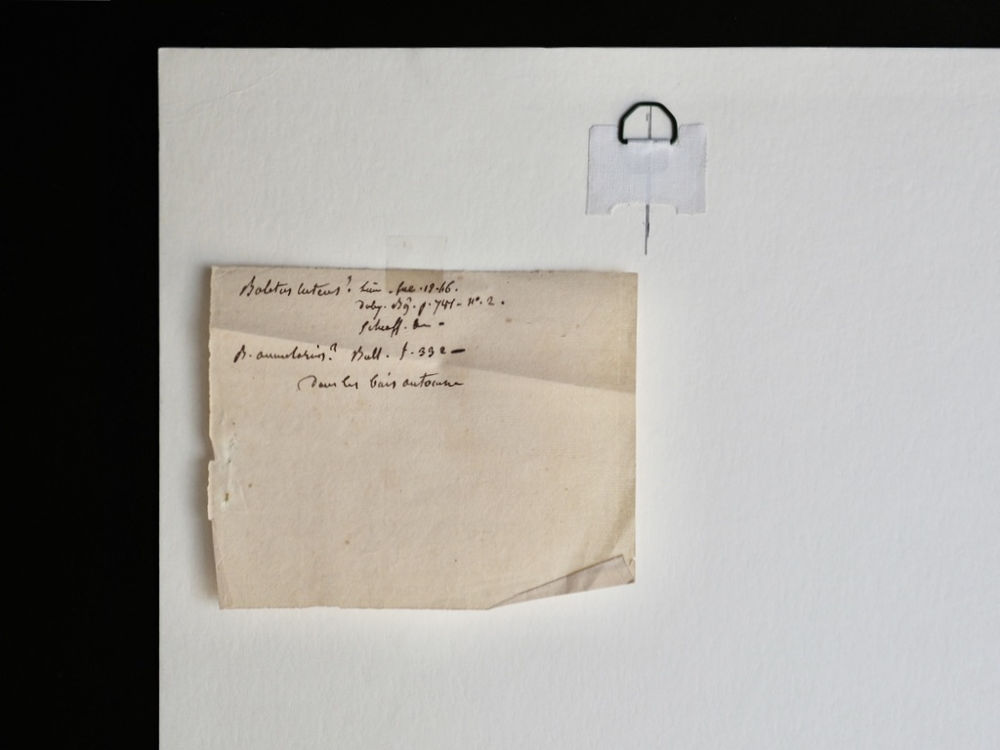 Boletus luteus? Lin. suc. 1246.
Duby. Bg. p. 741. N° 2.
Schaeff.
B. annularius? Bull. t. 332 —
Dans les bois automne